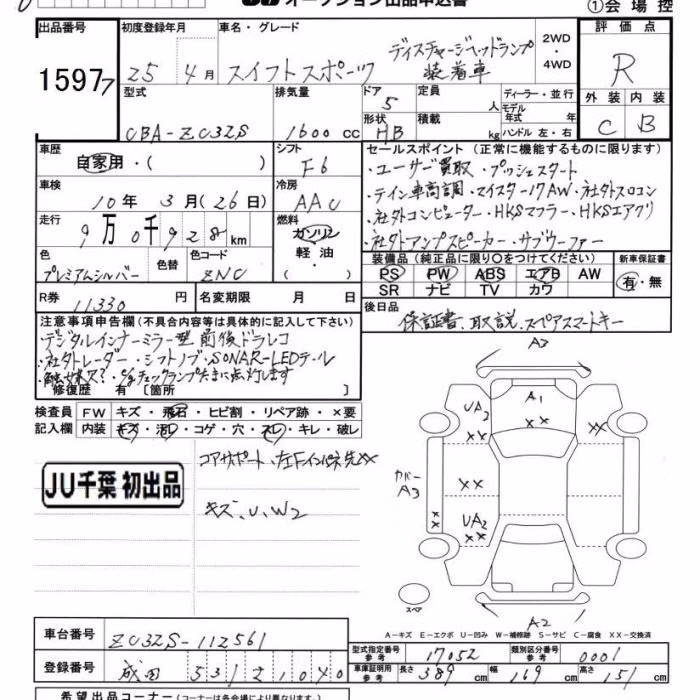 オークション出品申込書
①会場控
出品番号 初度登録年月 車名・グレード 評価点
15977 25 4月 スイフトスポーツ ディスチャージヘッドランプ装着車 2WD・4WD R
型式 排気量 ドア 定員 ディーラー・並行 外装 内装
CBA-ZC32S 1600cc 5 人 モデル年式 年式 C B
形状 積載 ハンドル 左・右
HB kg
車歴 シフト セールスポイント(正常に機能するものに限ります)
自家用・( ) F6 ・ユーザー買取・プッシュスタート
車検 冷房 ・テイン車高調・マイスター17AW・社外スロコン
10年3月(26日) AAC ・社外コンピューター・HKSマフラー・HKSエアクリ
走行 燃料 ・社外アンプスピーカー・サブウーファー
9万0千928km ガソリン・軽油・( )
色 色替 色コード 装備品(純正品に限り○をつけてください) 新車保証書
プレミアムシルバー ZNC PS PW ABS エアB AW 有・無
SR ナビ TV カワ
R券 11330円 名変期限 月 日 後日品
保証書、取説、スペアスマートキー
注意事項申告欄(不具合内容等は具体的に記入して下さい)
・デジタルインナーミラー型前後ドラレコ
・社外レーダー・シフトノブ・SONAR-LEDテール
チェックランプたまに点灯します
修復歴 有〔箇所 〕
検査員記入欄 FW キズ・飛石・ヒビ割・リペア跡・×要
内装 キズ・汚レ・コゲ・穴・スレ・キレ・破レ
コアサポート・左Fインパネ先XX
キズ、U、W2
JU千葉 初出品
A3
UA2 A1
XX XX XX
カバー A3
XX
XX UA2
XX
スペア
A2
A-キズ E-エクボ U-凹み W-補修跡 S-サビ C-腐食 XX-交換済
車台番号 ZC32S-112561
型式指定番号 参考 17052 類別区分番号 参考 0001
登録番号 成田 531 21040
車庫証明用 参考 長さ 389cm 幅 169cm 高さ 151cm
希望出品コーナー(コーナーは各会場により異なります)